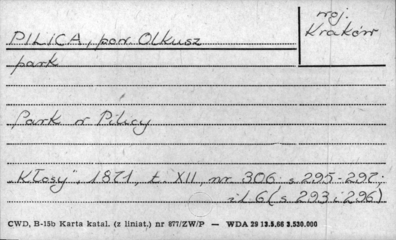 woj.
Kraków
PILICA, pow. Olkusz
park
Park w Pilicy
„Kłosy", 1871, t. XII, nr 306; s 295-297;
il 6 (s 293 i 296)
CWD, B-15b Karta katal. (z liniat.) nr 877/ZW/P — WDA 29 12.5.66 2.530.000